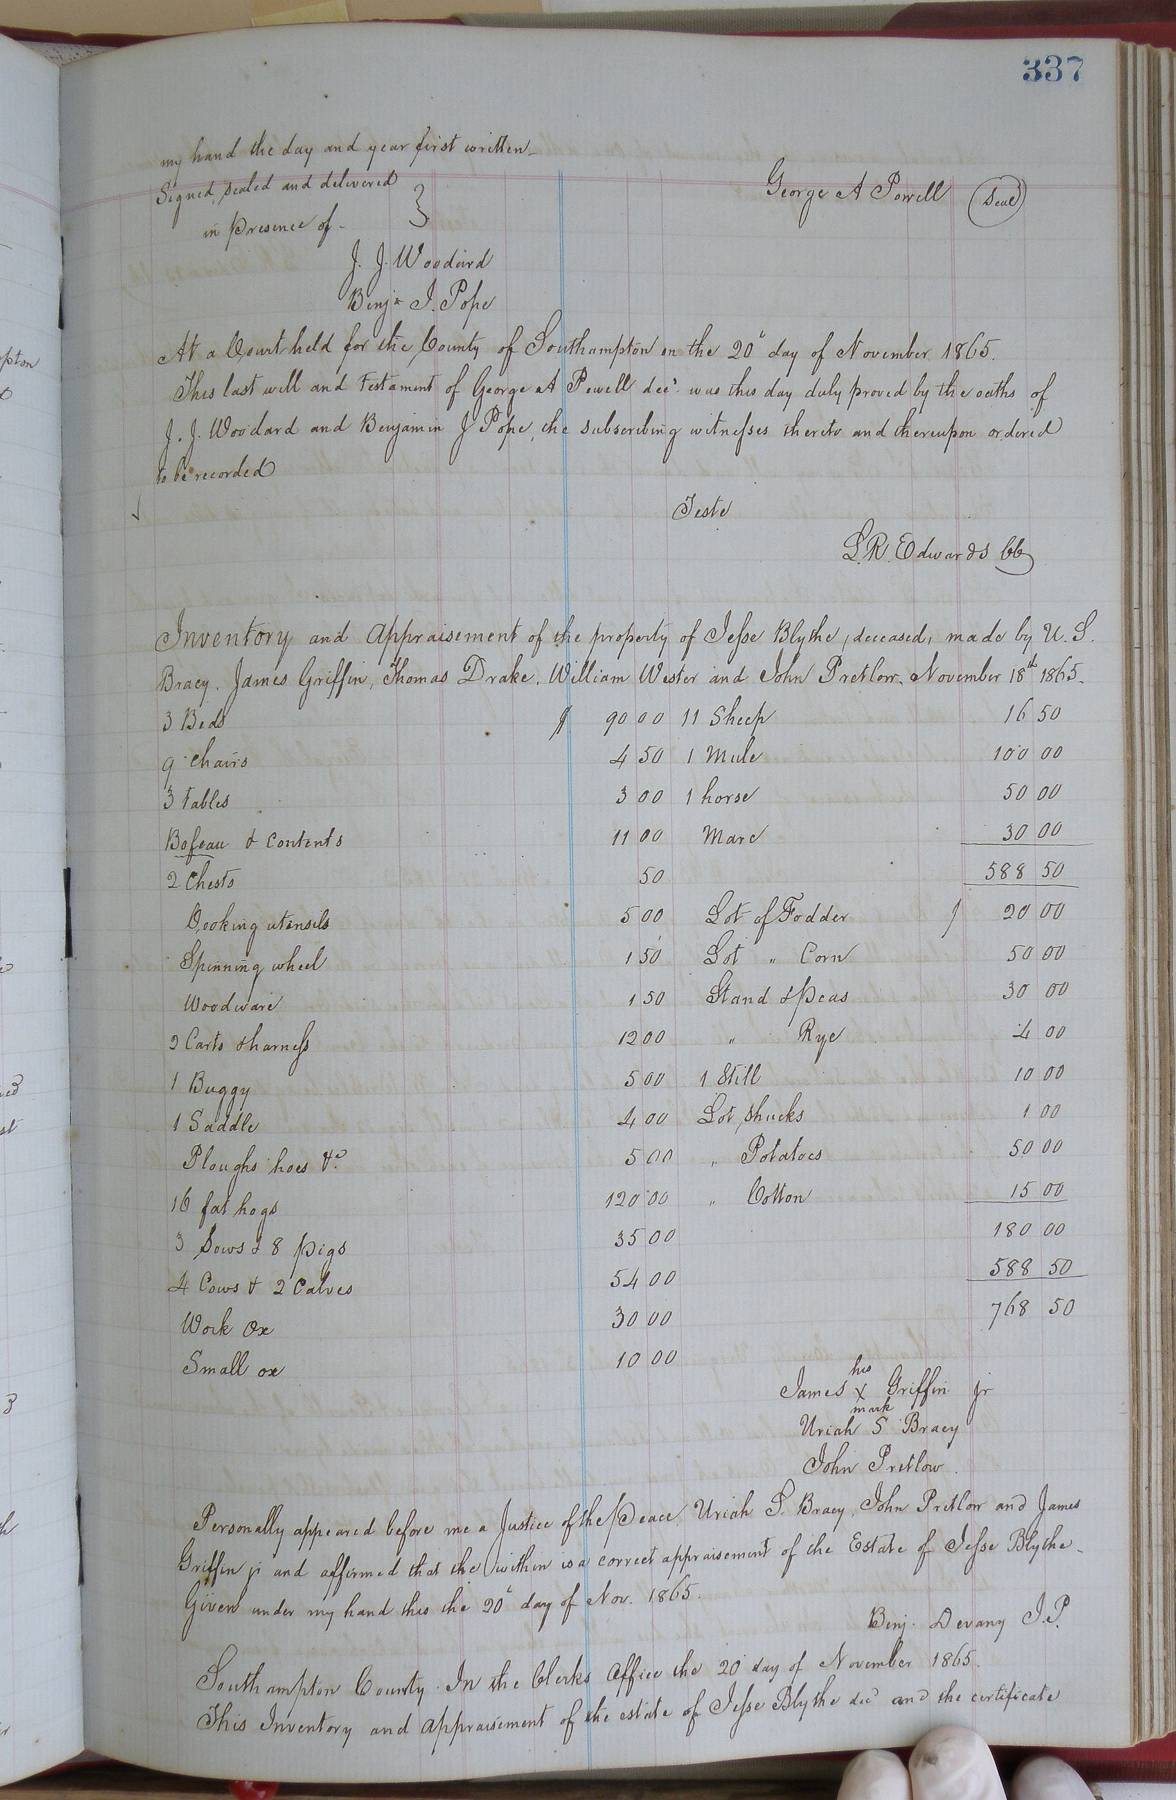 337
my hand the day and year first written
Signed, sealed and delivered } George A Powell (Seal)
in presence of
J. J. Woodard
Benj. J. Pope
At a Court held for the County of Southampton on the 20" day of November 1865.
This last will and Testament of George A Powell decd. was this day duly proved by the oaths of
J. J. Woodard and Benjamin J Pope, the subscribing witnesses thereto and thereupon ordered
to be recorded
Teste
L. R. Edwards CC
Inventory and Appraisement of the property of Jesse Blythe, deceased, made by U. S.
Bracy. James Griffin, Thomas Drake. William Wester and John Pretlow. November 18th 1865.
3 Beds $ 90 00 11 Sheep 16 50
9 Chairs 4 50 1 Mule 100 00
3 Tables 3 00 1 horse 50 00
Bofeau & Contents 11 00 Mare 30 00
2 Chests 50 588 50
Cooking utensils 5 00 Lot of Fodder $ 20 00
Spinning wheel 1 50 Lot " Corn 50 00
Woodware 1 50 Stand & Peas 30 00
2 Carts & harness 12 00 " Rye 4 00
1 Buggy 5 00 1 Still 10 00
1 Saddle 4 00 Lot shucks 1 00
Ploughs hoes &c. 5 00 " Potatoes 50 00
16 fat hogs 120 00 " Cotton 15 00
3 Sows & 8 pigs 35 00 180 00
4 Cows & 2 Calves 54 00 588 50
Work Ox 30 00 768 50
Small ox 10 00
his
James X Griffin jr
mark
Uriah S Bracy
John Pretlow.
Personally appeared before me a Justice of the Peace, Uriah S. Bracy, John Pretlow and James
Griffin jr and affirmed that the within is a correct appraisement of the Estate of Jesse Blythe
Given under my hand this the 20" day of Nov. 1865.
Benj. Devany J.P.
Southampton County. In the Clerks Office the 20 day of November 1865.
This Inventory and appraisement of the estate of Jesse Blythe decd and the certificate